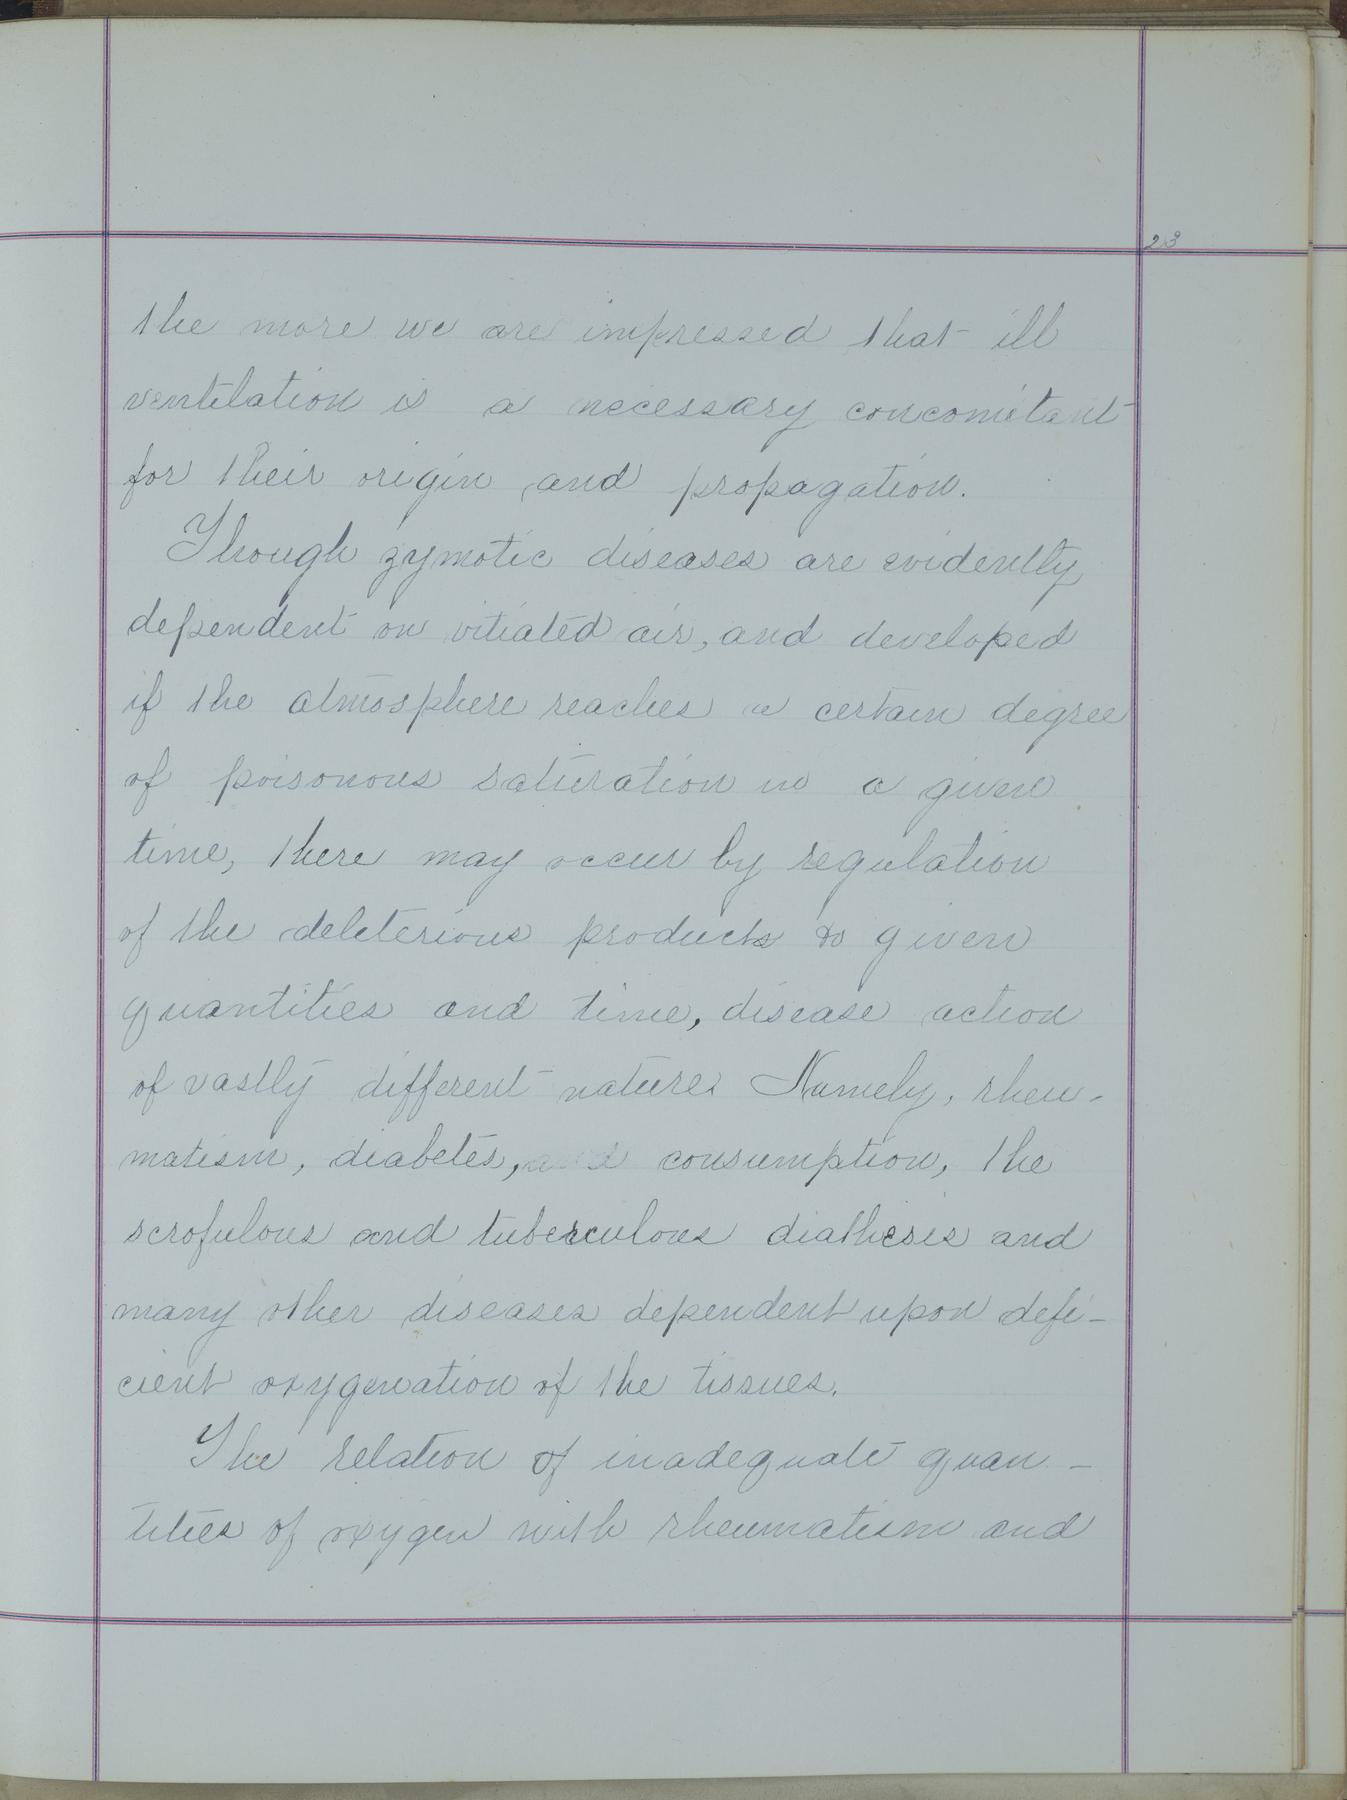 23
the more we are impressed that ill
ventilation is a necessary concomitant
for their origin and propagation.
Though zymotic diseases are evidently
dependent on vitiated air, and developed
if the atmosphere reaches a certain degree
of poisonous saturation in a given
time, there may occur by regulation
of the deleterious products to given
quantities and time, disease action
of vastly different nature. Namely, rheu-
matism, diabetes, and consumption, the
scrofulous and tuberculous diathesis and
many other diseases dependent upon defi-
cient oxygenation of the tissues.
The relation of inadequate quan-
tities of oxygen with rheumatism and